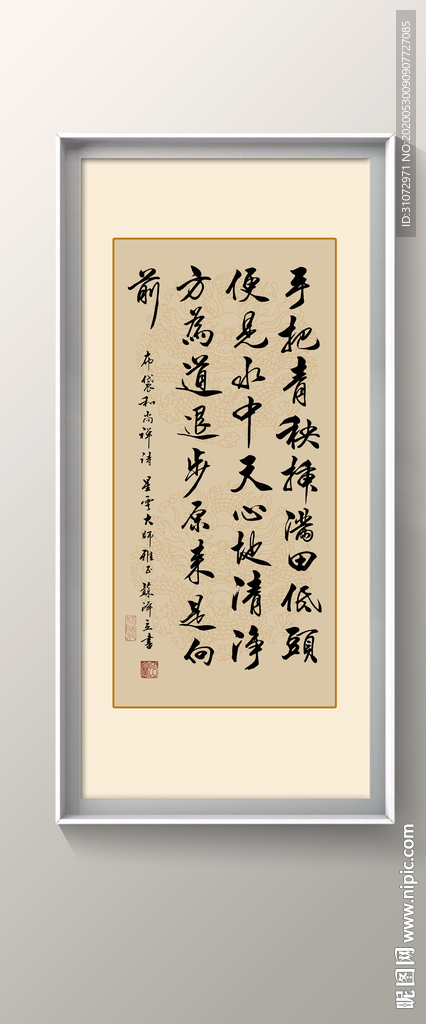 手把青秧插满田低頭
便見水中天心地清淨
方為道退步原來是向
前
布袋和尚禅诗 星雲大師雅正 蘇澤立書
ID:31072971 NO:20200530090907727085
昵图网 www.nipic.com